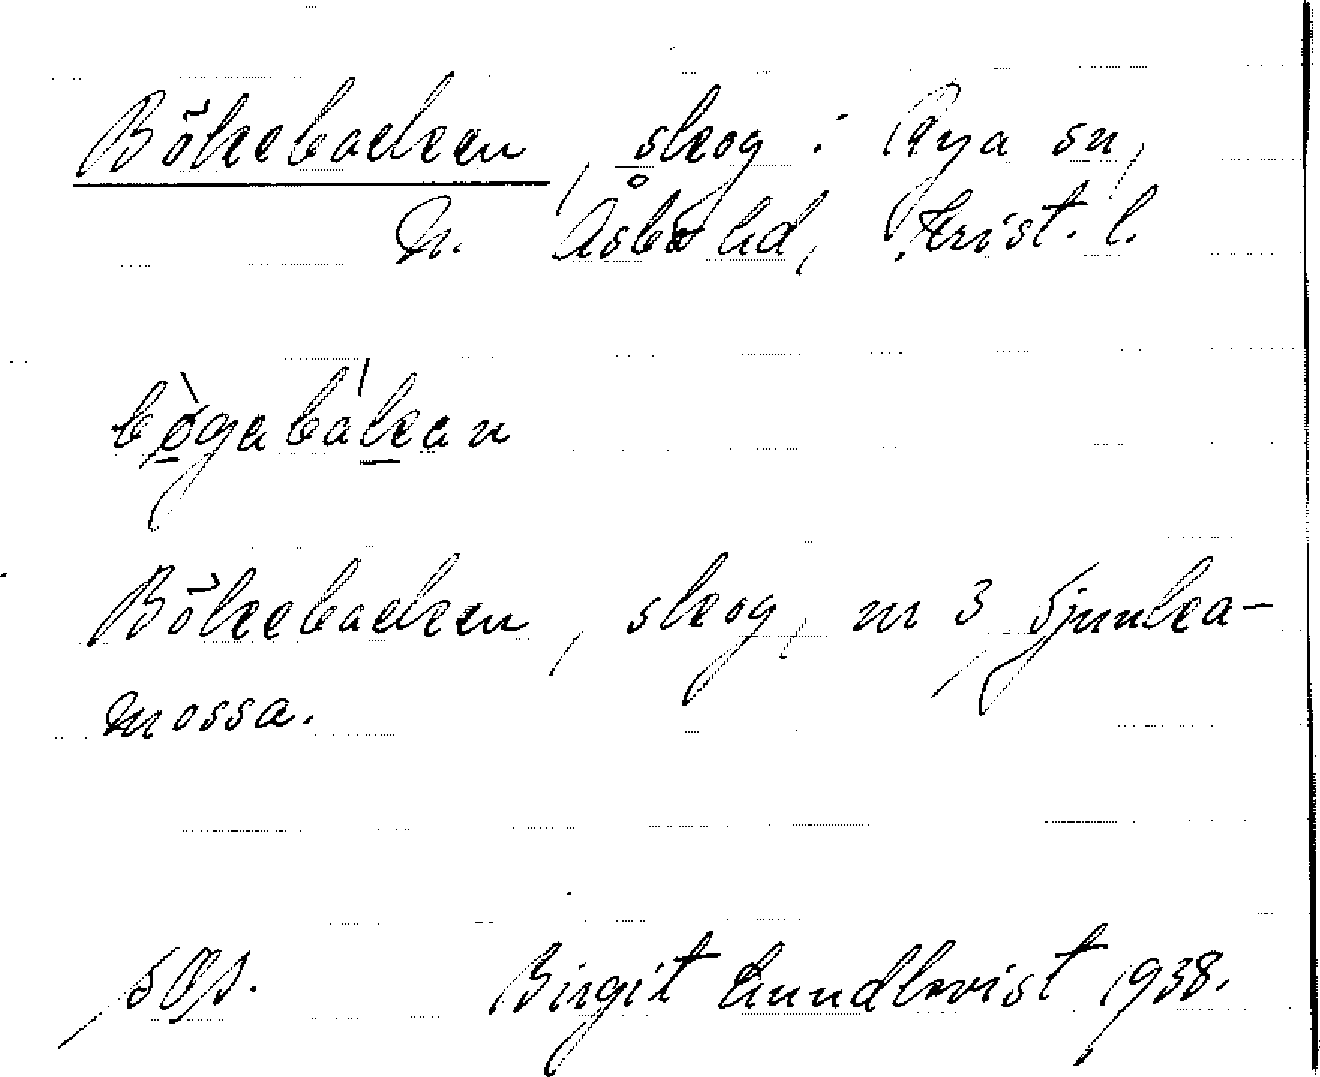 Bökebacken, skog i Rya sn,
N. Åsbo hd, Krist. l.
bø̀gabákan
Bökebacken, skog, nr 3 Sjunka-
mossa.
Birgit Lundkvist 1938.